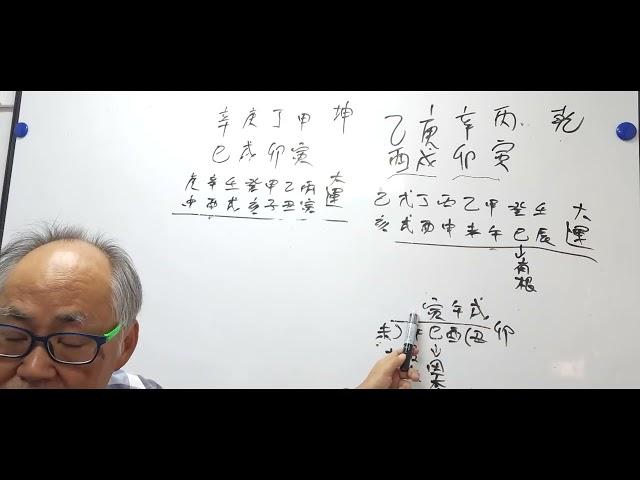 辛庚丁甲 坤
巳戌卯寅
庚辛壬癸甲乙丙 大運
申酉戌亥子丑寅
乙庚辛丙 乾
酉戌卯寅
己戊丁丙乙甲癸壬 大運
亥戌酉申未午巳辰
↓
有根
寅午戌
巳酉(丑 卯
↓